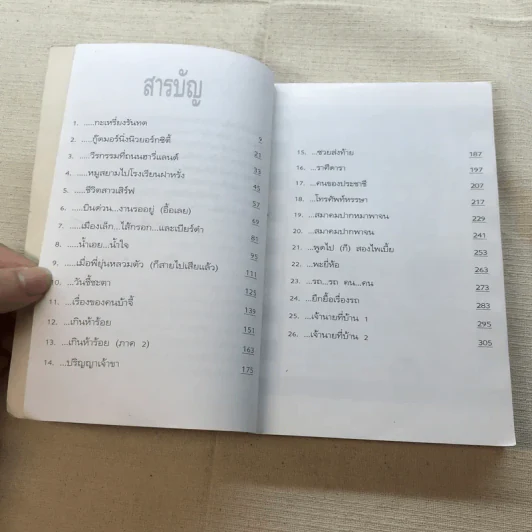 สารบัญ
1. .....กะเหรี่ยงรันทด 9
2. .....กู๊ดมอร์นิ่งนิวยอร์กซิตี้ 21
3. .....วีรกรรมที่ถนนฮาวี่แลนด์ 33
4. .....หมูสยามไปโรงเรียนฝาหรั่ง 45
5. .....ชีวิตสาวเสิร์ฟ 57
6. .....บินด่วน...งานรออยู่ (อื้อเลย) 69
7. .....เมืองเล็ก...ไส้กรอก...และเบียร์ดำ 81
8. .....น้ำเอย...น้ำใจ 95
9. ...เมื่อพี่ยุ่นหลวมตัว (ก็สายไปเสียแล้ว) 111
10. ...วันชี้ชะตา 125
11. ...เรื่องของคนบ้าจี้ 139
12. ...เกินห้าร้อย 151
13. ...เกินห้าร้อย (ภาค 2) 163
14. ...ปริญญาเจ้าขา 175
15. ...ชวยส่งท้าย 187
16. ...ราศีดารา 197
17. ...คนของประชาชี 207
18. ...โทรศัพท์หรรษา 217
19. ...สมาคมปากหมาพาจน 229
20. ...สมาคมปากพาจน 241
21. ...พูดไป (ก็) สองไพเบี้ย 253
22. ...พะยี่ห้อ 263
23. ...รถ...รถ คน...คน 273
24. ...ยึกยื้อเรื่องรถ 283
25. ...เจ้านายที่บ้าน 1 295
26. ...เจ้านายที่บ้าน 2 305